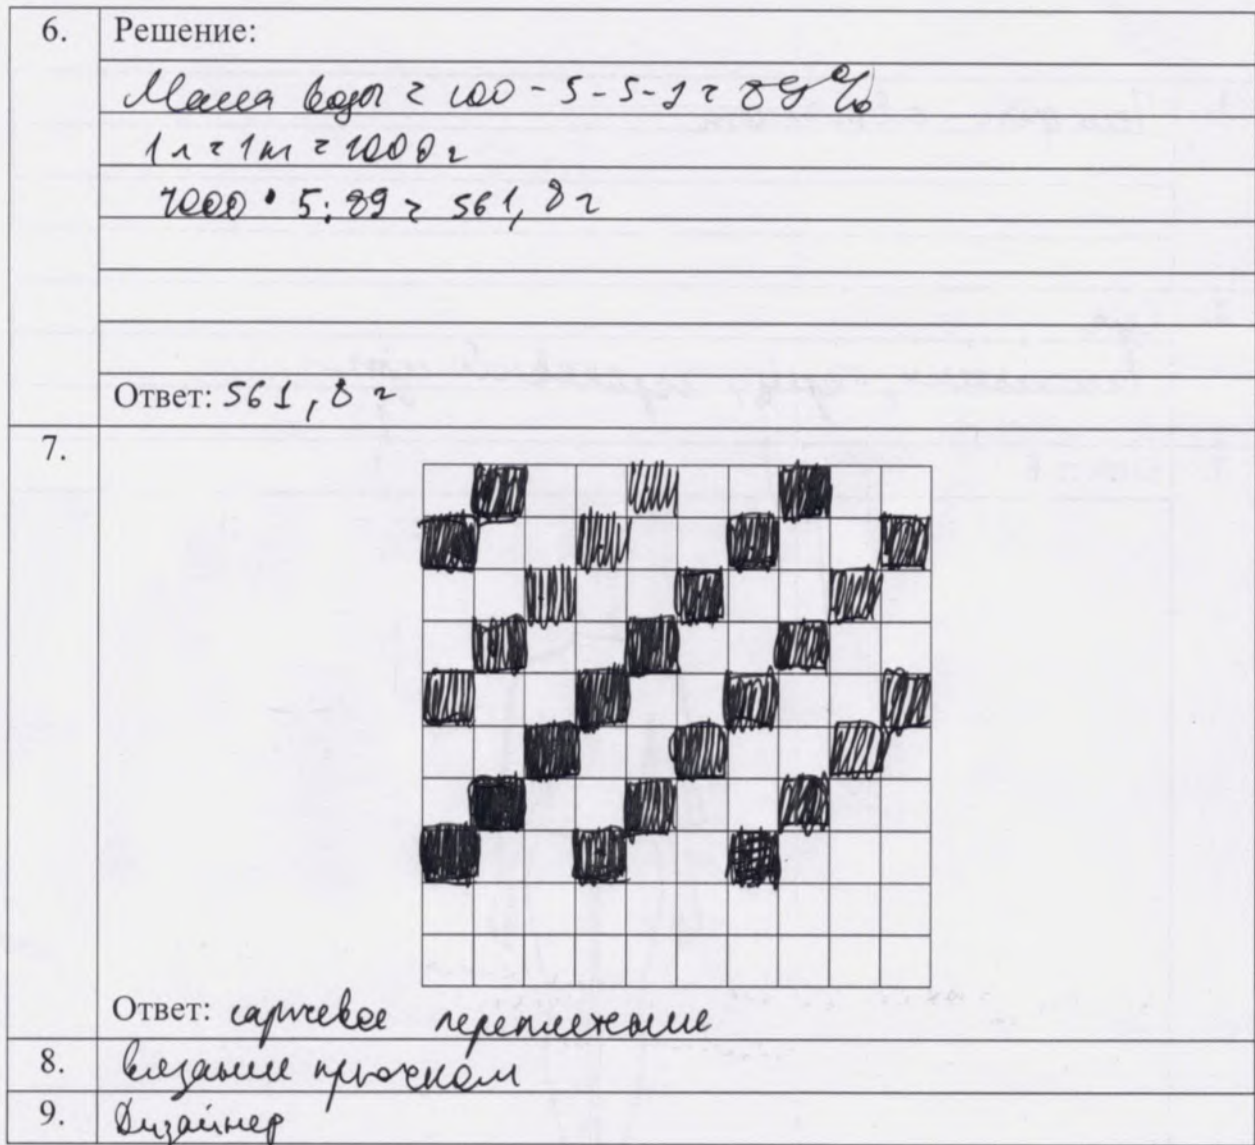 6. Решение:
Масса воды = 100 - 5 - 5 - 1 = 89 %
1 л = 1 кг = 1000 г
1000 • 5 : 89 = 561,8 г
Ответ: 561,8 г
7.
Ответ: саржевое переплетение
8. вязание крючком
9. Дизайнер